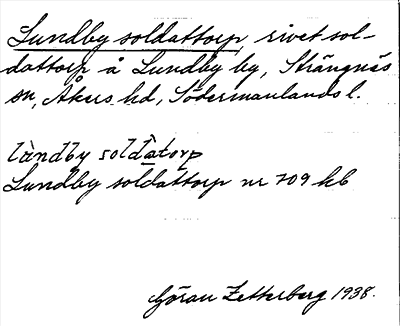 Lundby soldattorp, rivet sol-
dattorp å Lundby by, Strängnäs
sn, Åkers hd, Södermanlands l.
làndby soldàtorp
Lundby soldattorp nr 709 kb
Göran Zetterberg 1938.